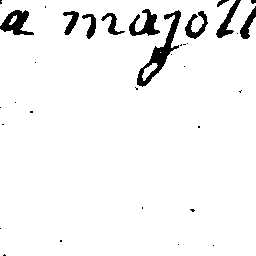 a majoll